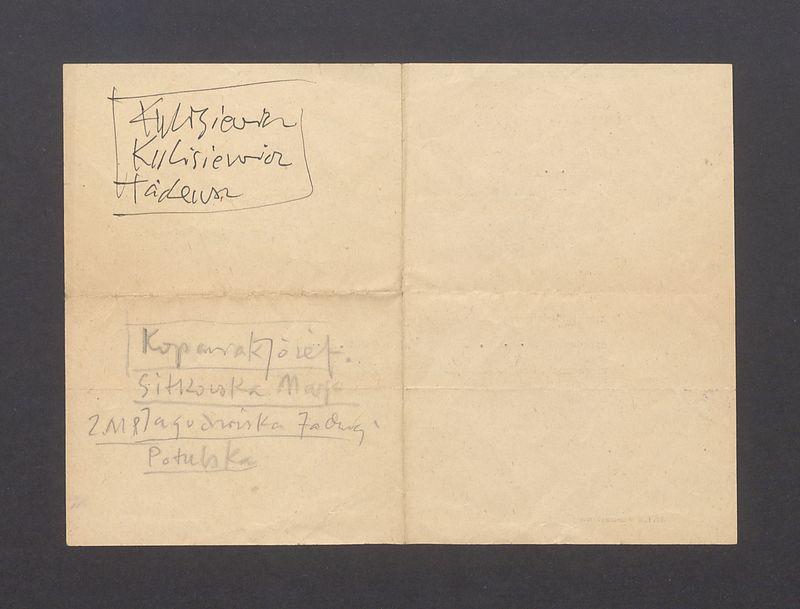 Kulisiewicz
Kulisiewicz
Tadeusz
Kopaniak Józef.
Sitkowska
Jagodzińska Jadwig
Potulska